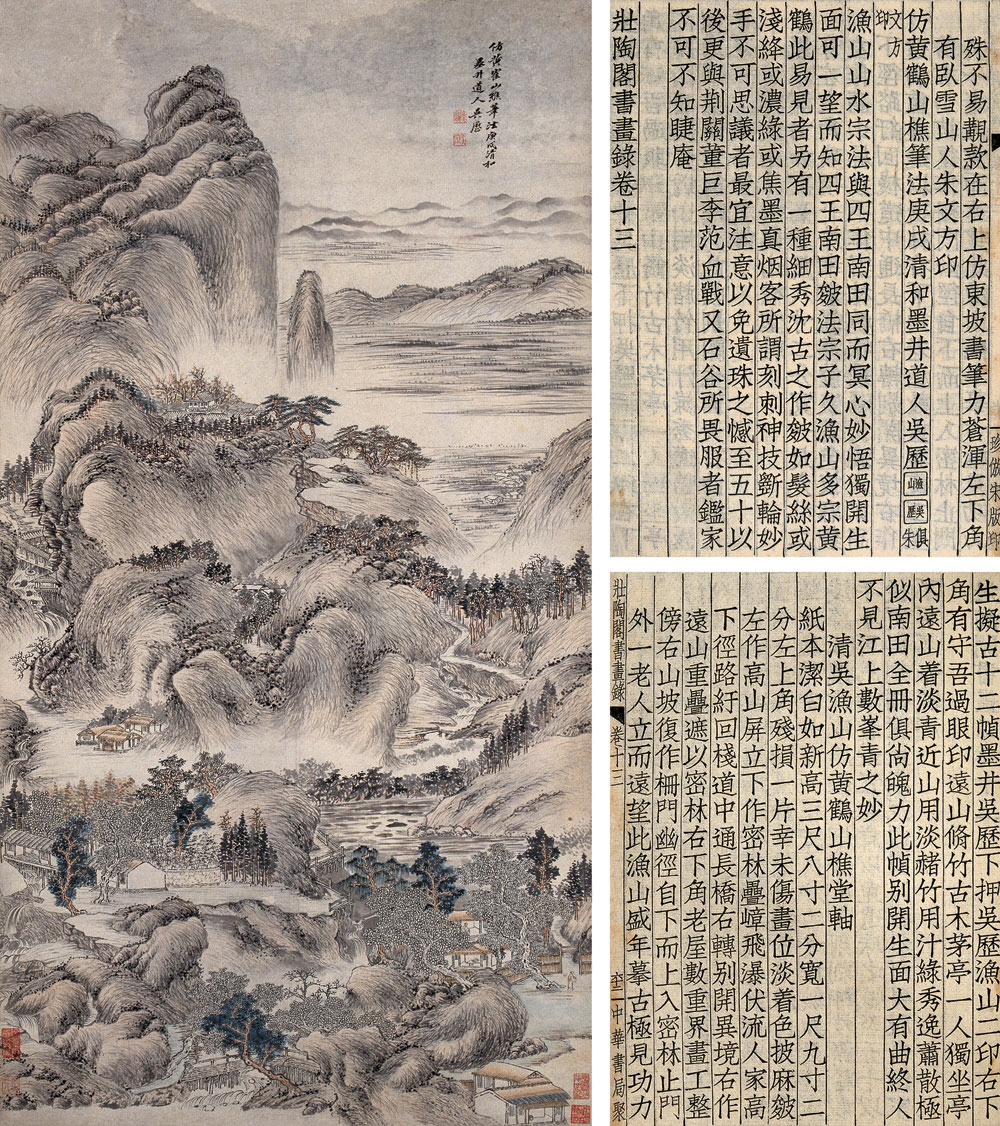 仿黃鶴山樵筆法庚戌清和
墨井道人吳歷
珍倣宋版印
殊不易觀款在右上仿東坡書筆力蒼渾左下角
有臥雪山人朱文方印
仿黃鶴山樵筆法庚戌清和墨井道人吳歷 漁山 吳歷 俱朱
文方印
漁山山水宗法與四王南田同而冥心妙悟獨開生
面可一望而知四王南田皴法宗子久漁山多宗黃
鶴此易見者另有一種細秀沈古之作皴如髮絲或
淺絳或濃綠或焦墨真烟客所謂刻刺神技斵輪妙
手不可思議者最宜注意以免遺珠之憾至五十以
後更與荆關董巨李范血戰又石谷所畏服者鑑家
不可不知睫庵
壯陶閣書畫錄卷十三
生擬古十二幀墨井吳歷下押吳歷漁山二印右下
角有守吾過眼印遠山脩竹古木茅亭一人獨坐亭
內遠山着淡青近山用淡赭竹用汁綠秀逸蕭散極
似南田全冊俱尙魄力此幀别開生面大有曲終人
不見江上數峯青之妙
清吳漁山仿黃鶴山樵堂軸
紙本潔白如新高三尺八寸二分寬一尺九寸二
分左上角殘損一片幸未傷畫位淡着色披麻皴
左作高山屏立下作密林疊嶂飛瀑伏流人家高
下徑路紆回棧道中通長橋右轉别開異境右作
遠山重疊遮以密林右下角老屋數重界畫工整
傍右山坡復作柵門幽徑自下而上入密林止門
外一老人立而遠望此漁山盛年摹古極見功力
壯陶閣書畫錄 卷十三 中華書局聚